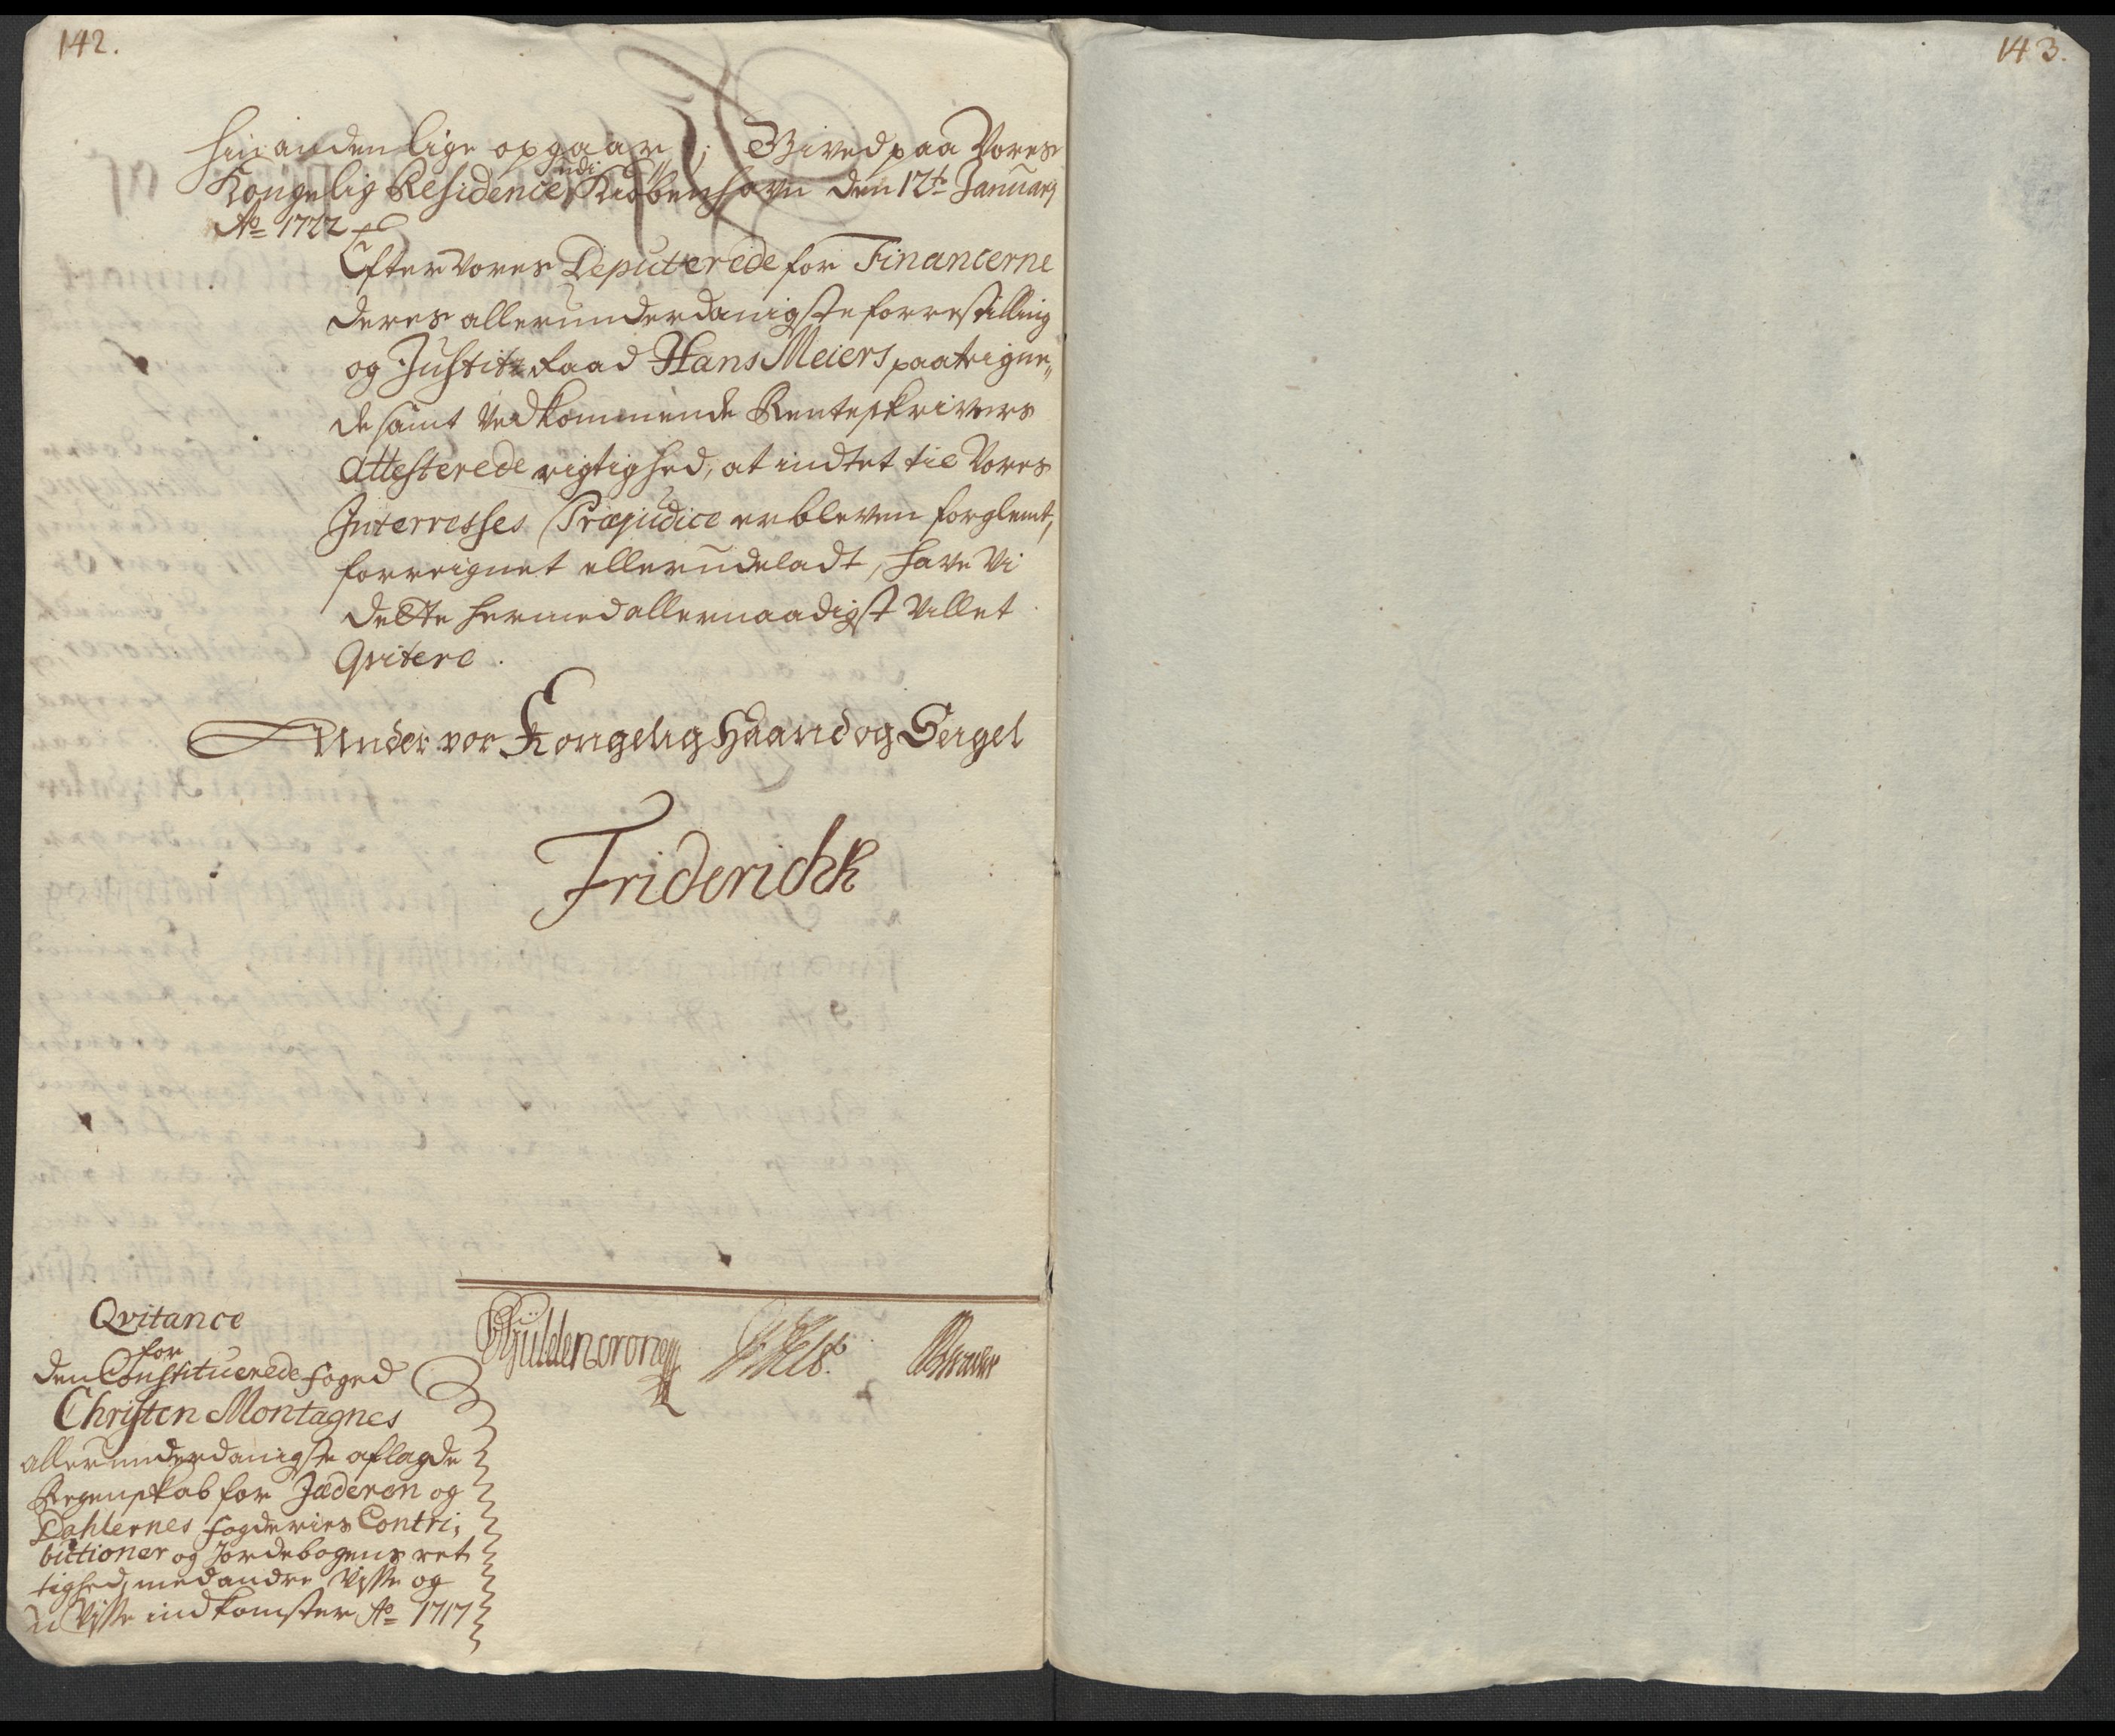 142.
hin anden lige opgaar; Gived paa Vores
Kongelig Residence udi Kiøbenhafn den 12te January
Ao 1722
Efter vores Deputerede for Financerne
deres allerunderdanigste forrestilling
og Justitz Raad Hans Meiers paateigne„
de samt Vedkommende Renteskrivers
attesterede rigtighed, at indtet til Vores
Interresses Præjudice er bleven forglemt,
forreignet eller udeladt, have Vi
dette hermed allernaadigst Villet
Qvitere.
Under vor Kongelig Haand og Seigel
Friderich R
Güldencrone
Qvitance
for
den Constituerede foged
Christen Montagnes
allerunderdanigste aflagde
Regenskab for Jæderen og
Dahlernes fogderies Contri,
butioner og Jordebogens ret
tighed, med andre Visse og
u Visse indkomster Ao 1717
143.